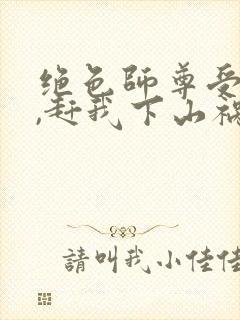 绝色师尊受
,赶我下山祸
請叫我小佳佳